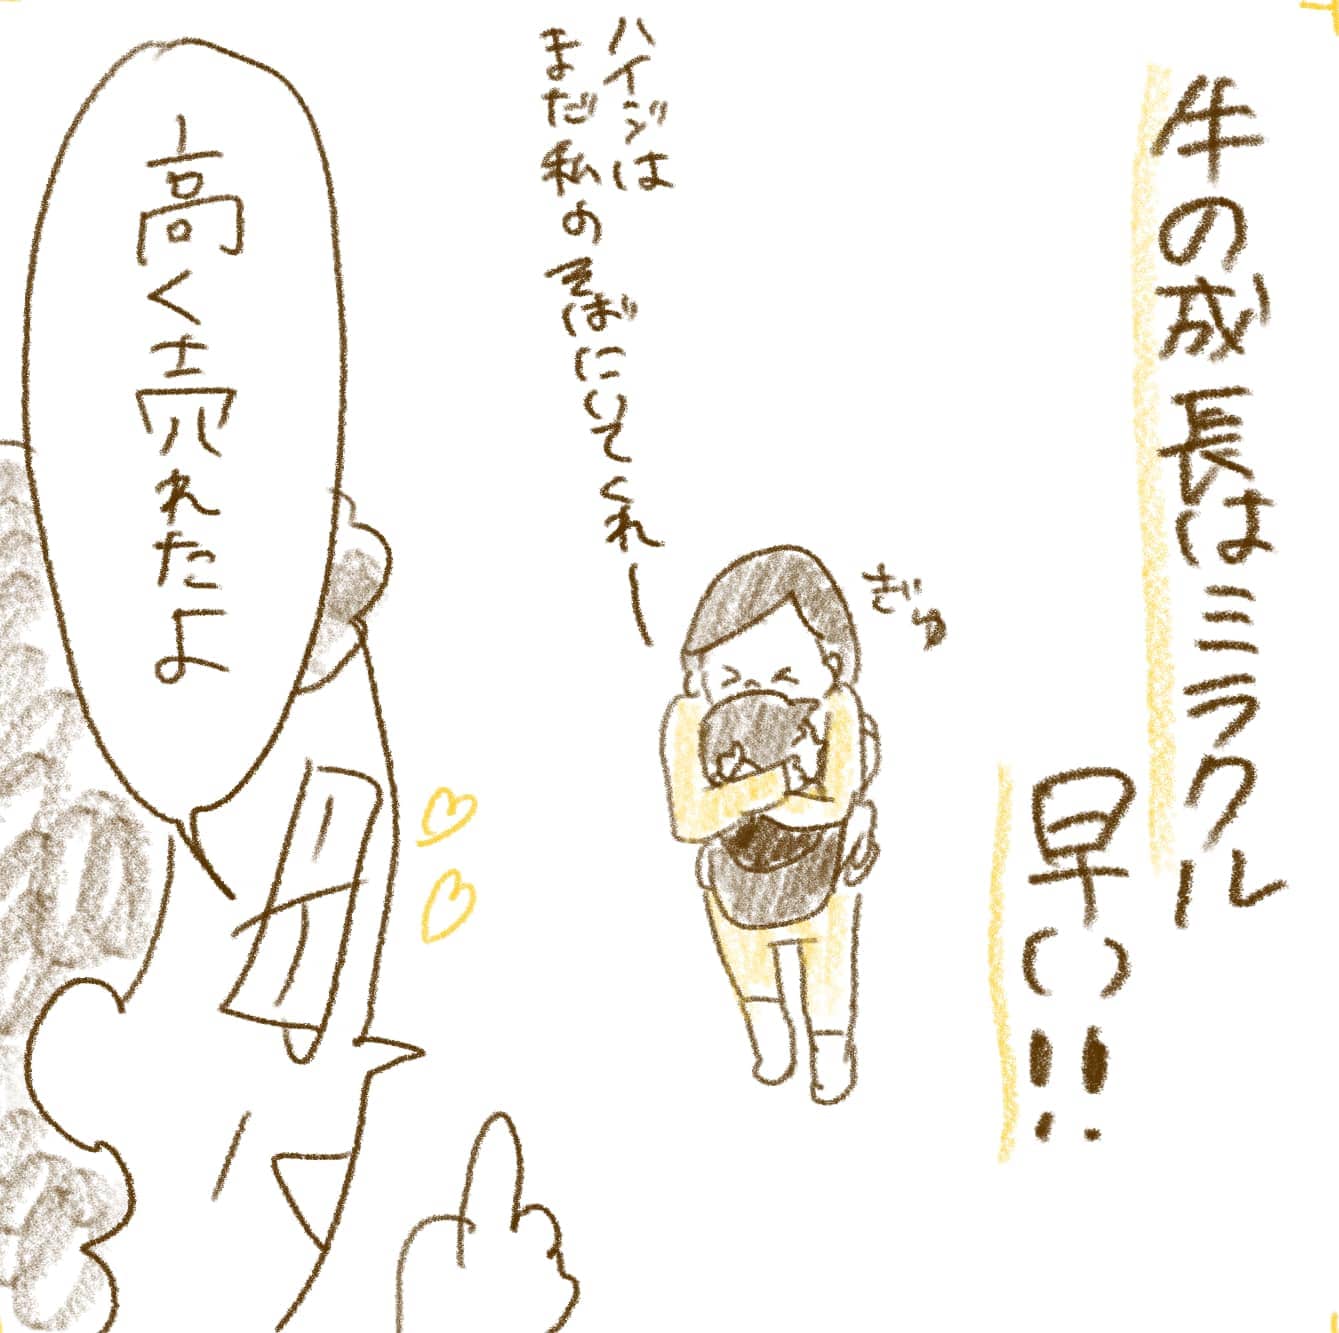 牛の成長はミラクル
早い!!
ぎゅ
ハイジは
まだ私のそばにいてくれー
高く売れたよ